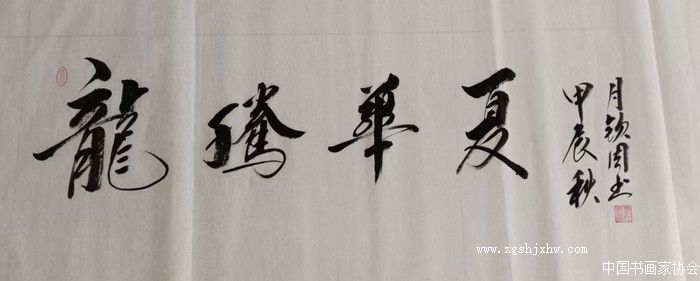 龍騰華夏
甲辰秋
月钦周书
www.zgshjxhw.com
中国书画家协会